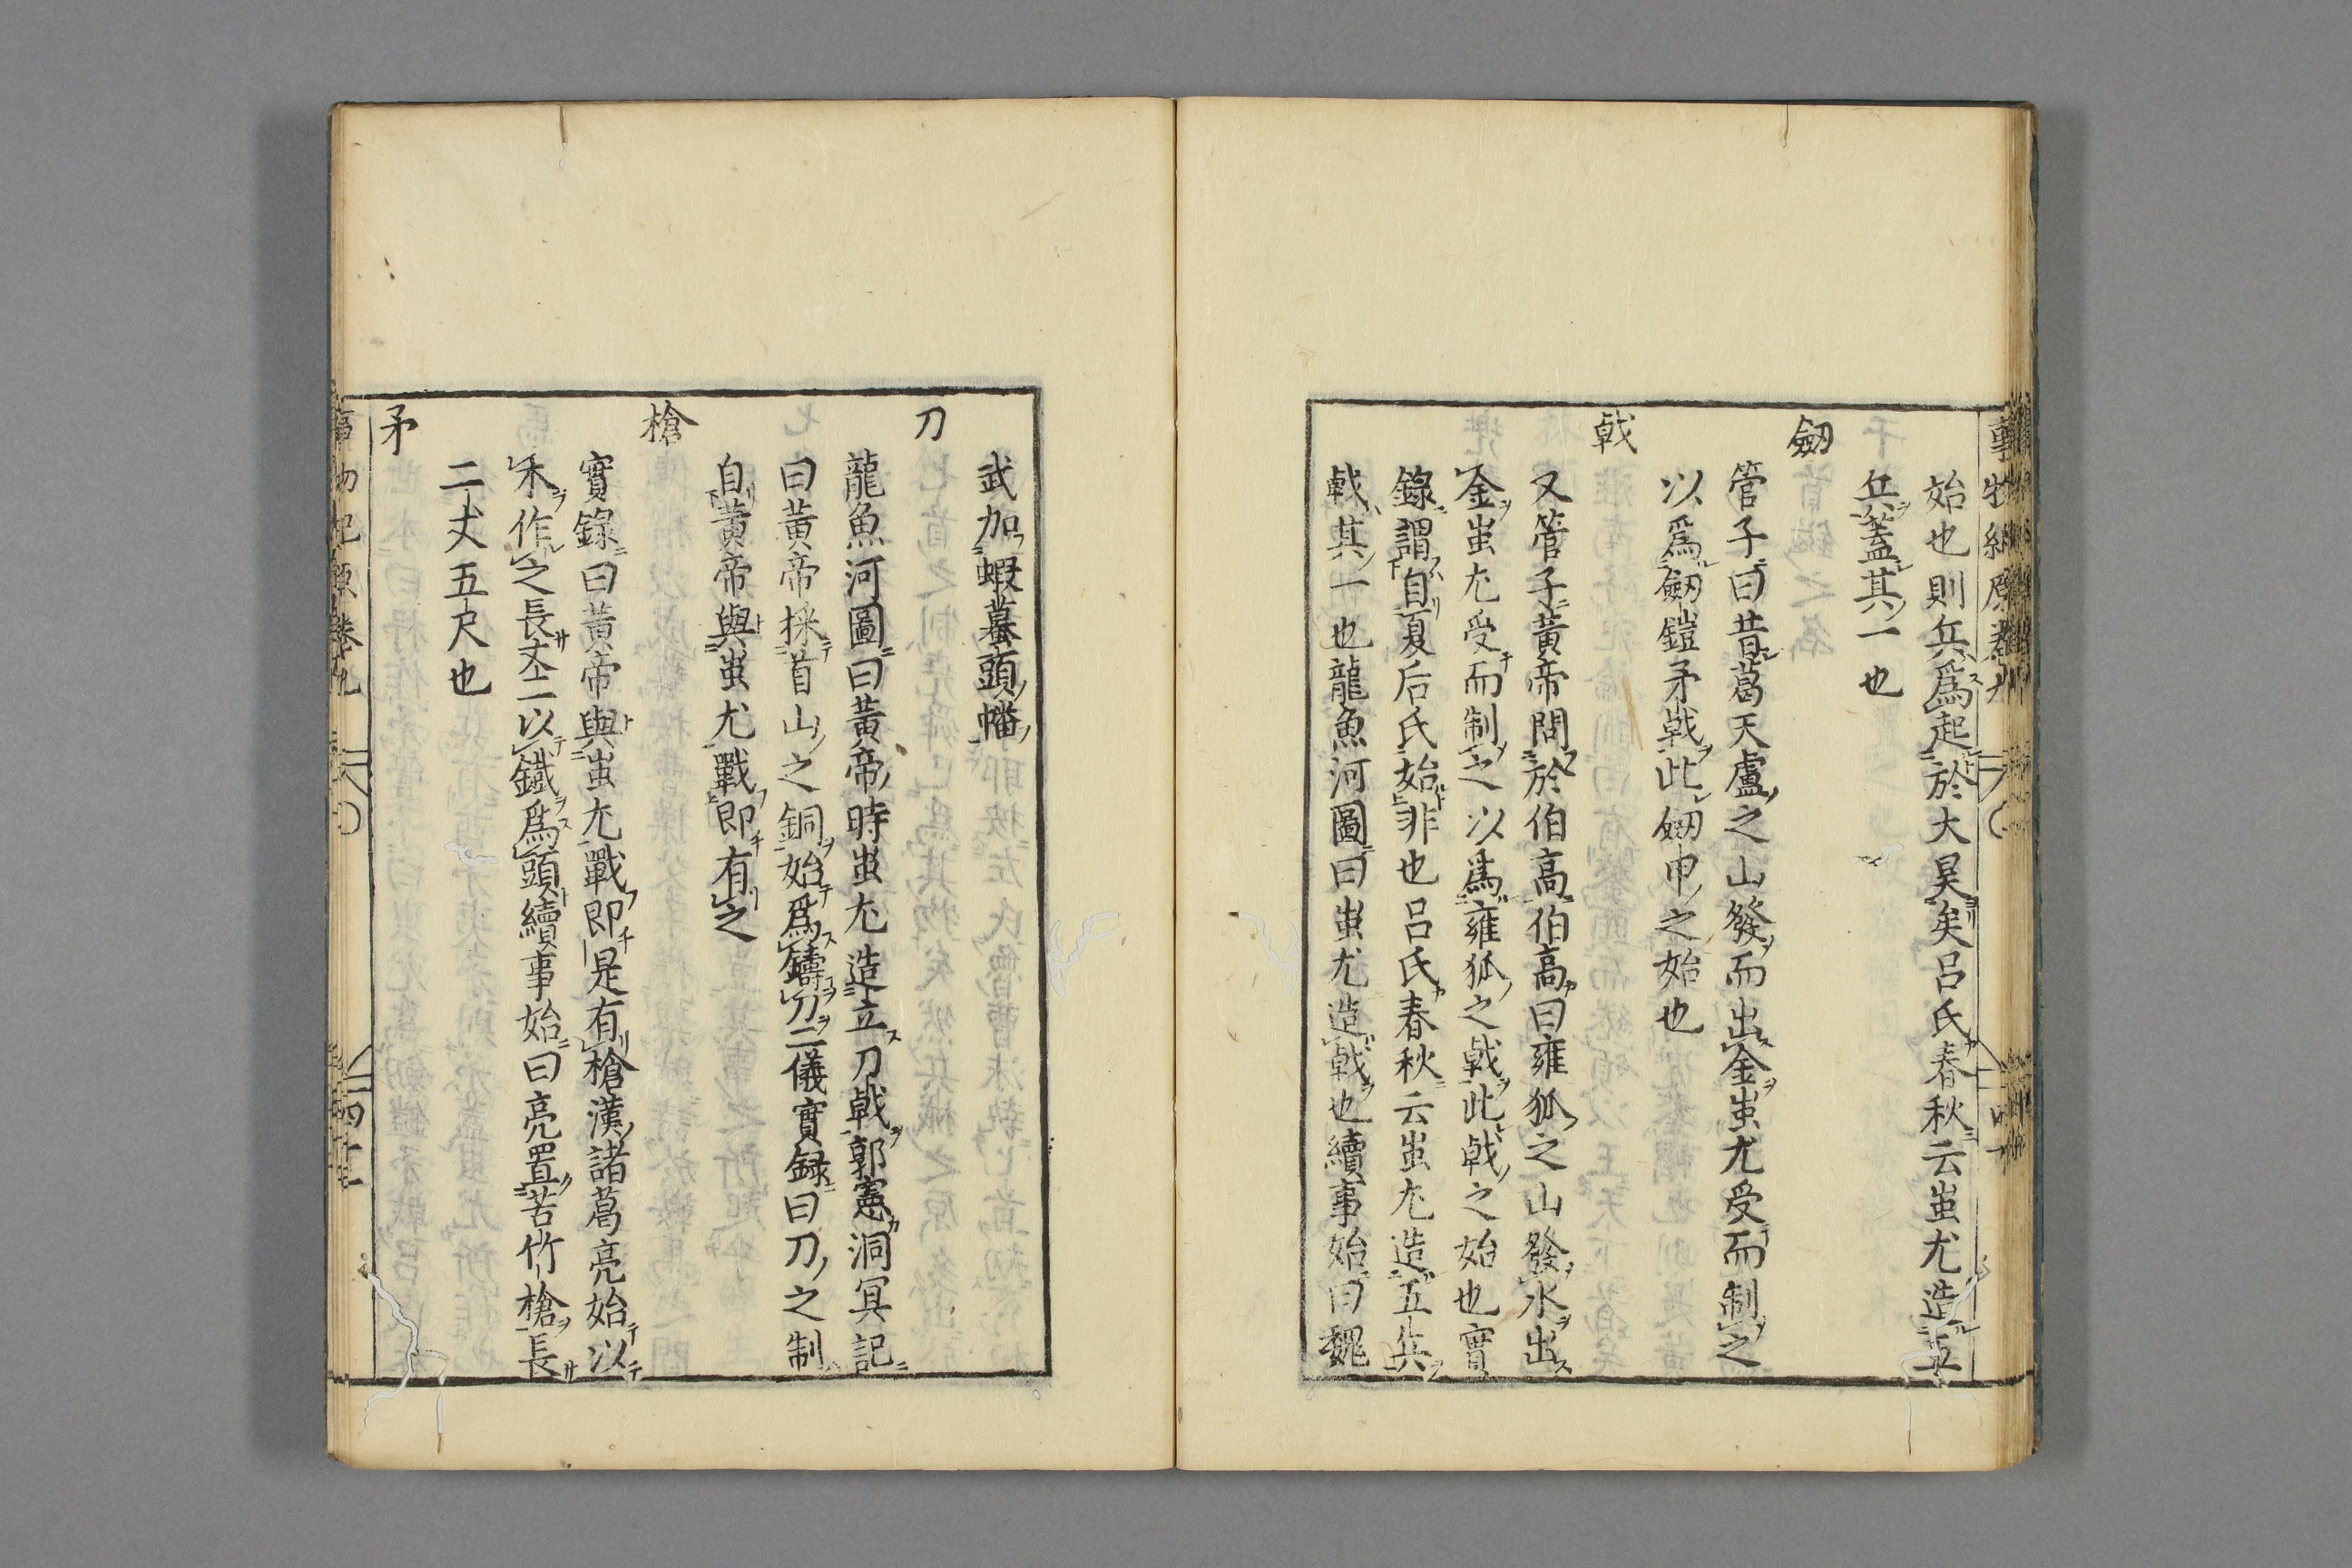 事物紀原卷九
始也則兵爲起於大昊矣呂氏春秋云蚩尤造五
兵蓋其一也
劔
管子曰昔葛天盧之山發而出金蚩尤受而制之
以爲劔鎧矛戟此劔甲之始也
戟
又管子黃帝問於伯高伯高曰雍狐之山發水出
金蚩尤受而制之以爲雍狐之戟此戟之始也實
錄謂自夏后氏始非也呂氏春秋云蚩尤造五兵
戟其一也龍魚河圖曰蚩尤造戟也續事始曰魏
武加蝦蟇頭幡
刀
龍魚河圖曰黃帝時蚩尤造立刀戟郭憲洞冥記
曰黃帝採首山之銅始爲鑄刀二儀實録曰刀之制
自黃帝與蚩尤戰即有之
槍
實錄曰黃帝與蚩尤戰即是有槍漢諸葛亮始以
木作之長丈二以鐵爲頭續事始曰亮置苦竹槍長
二丈五尺也
矛
事物紀原卷九